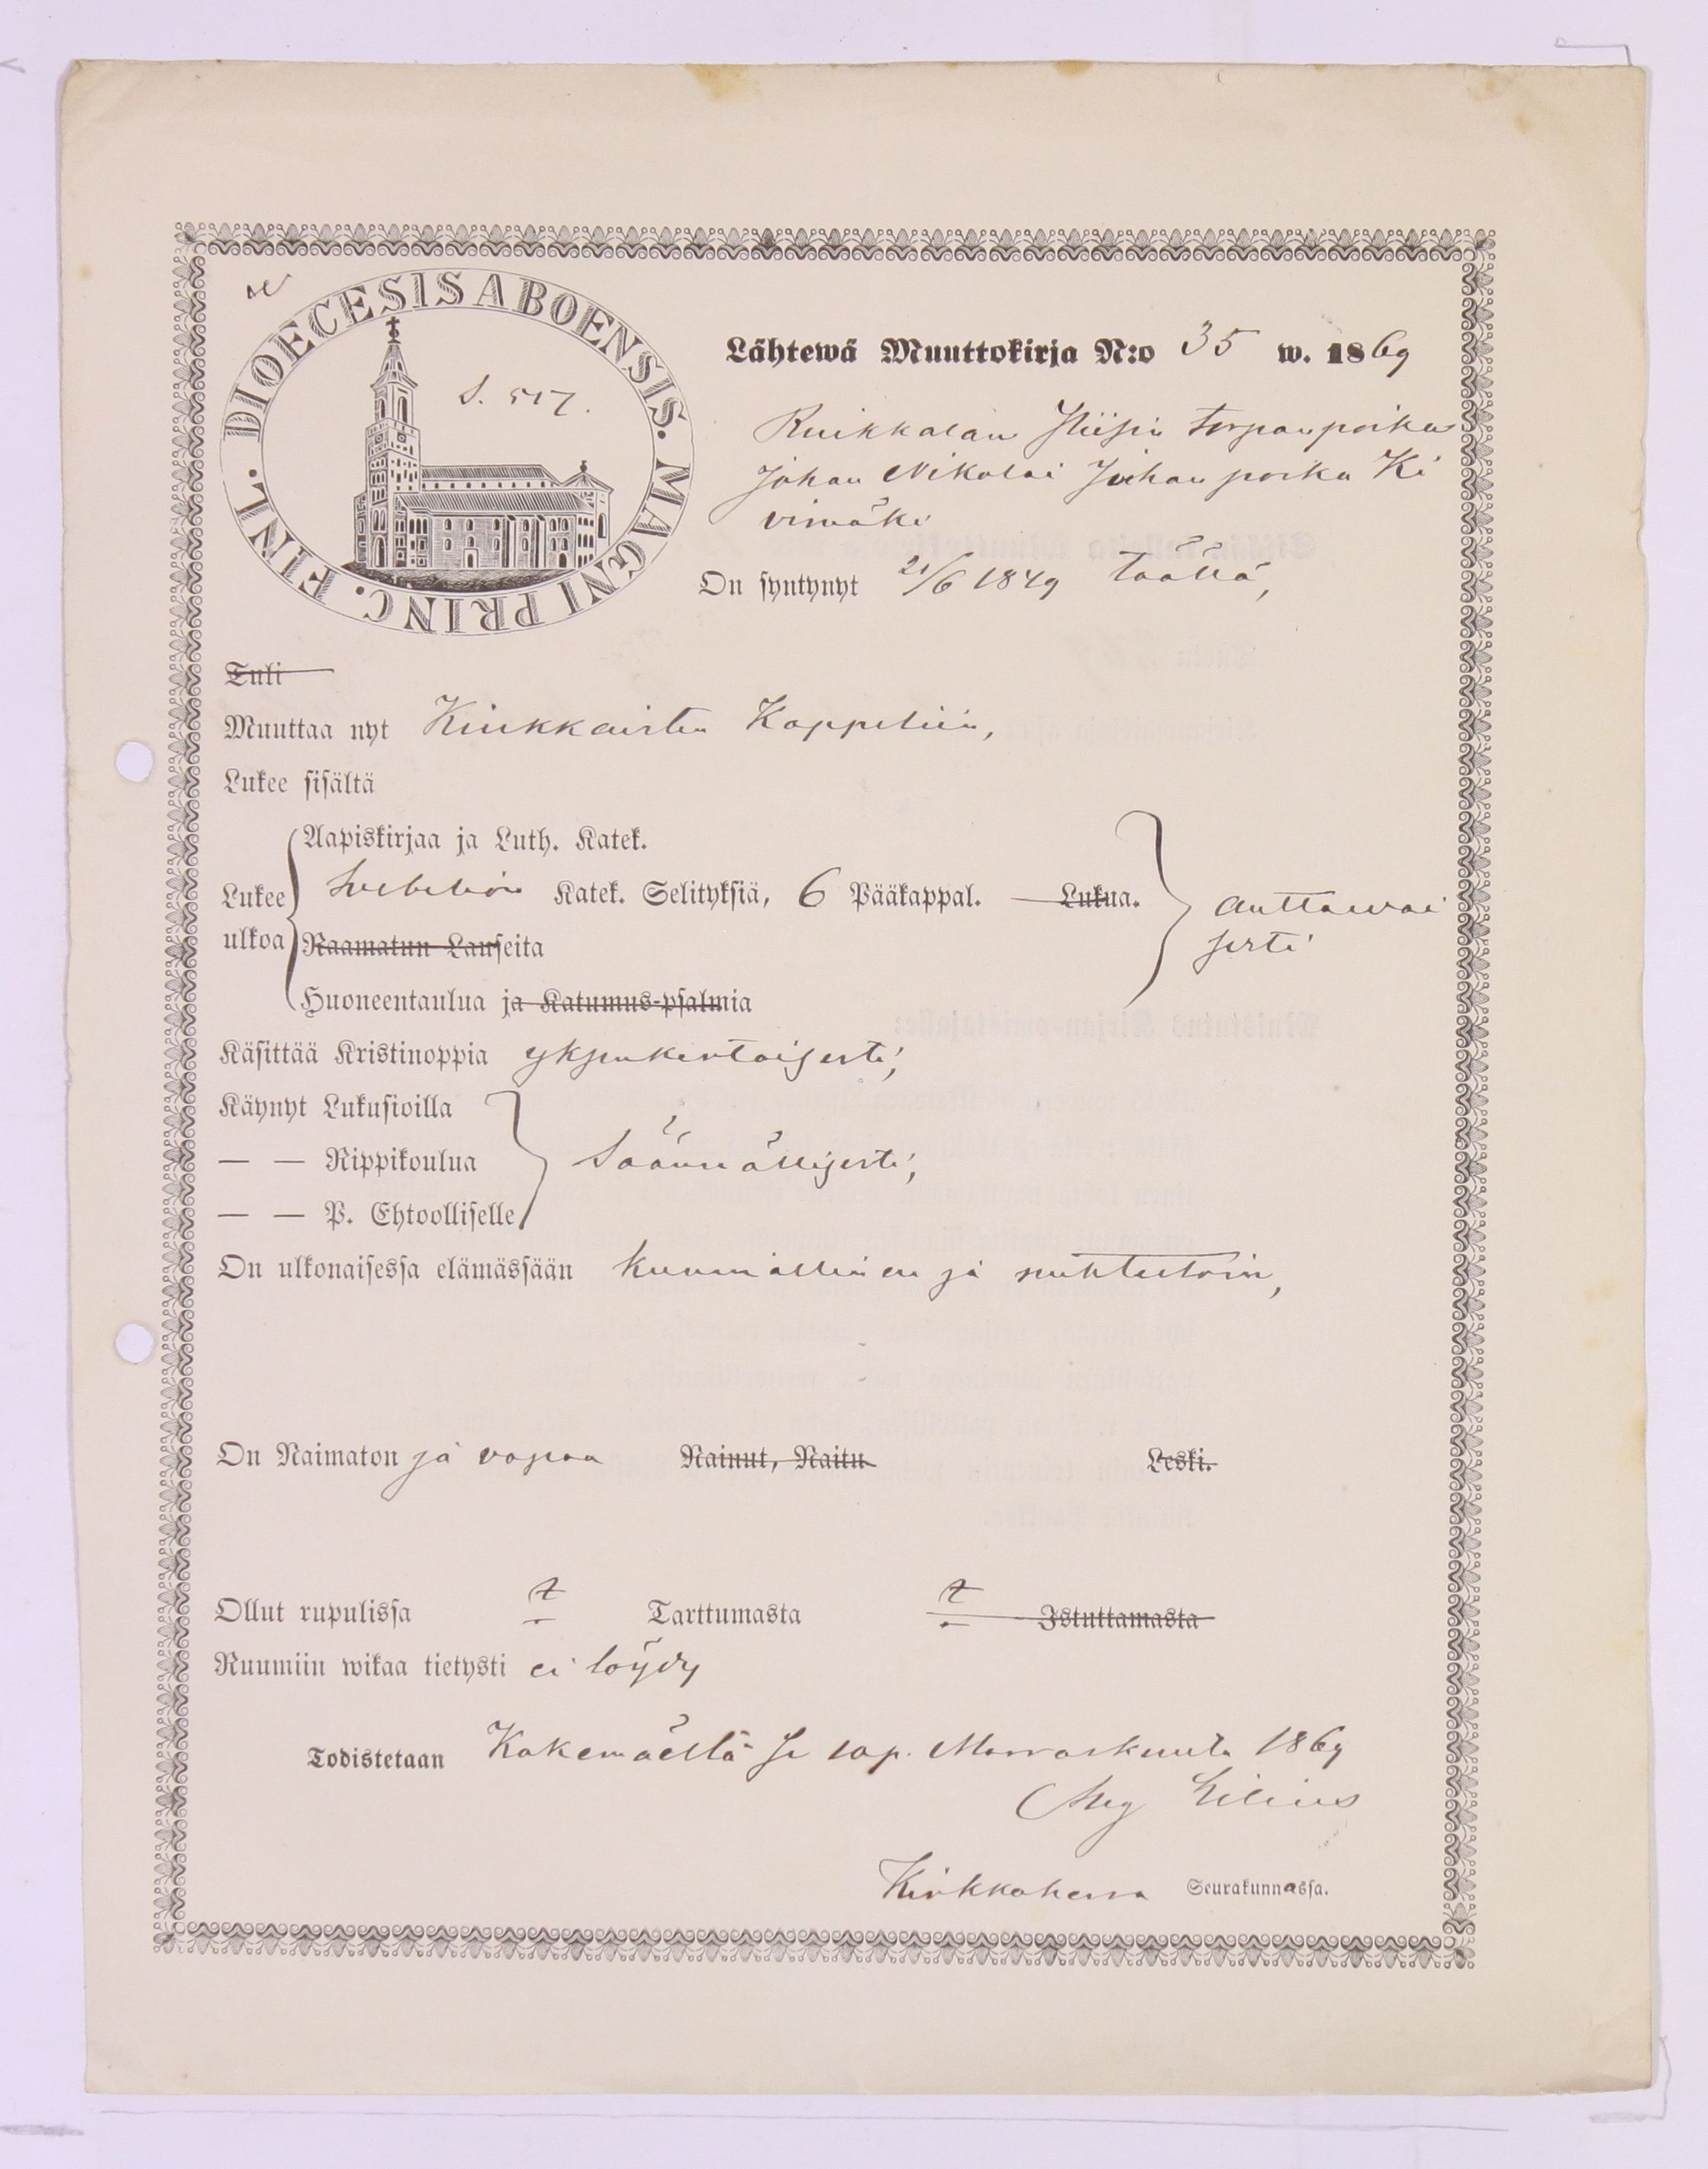 DIOECESIS ABOENSIS. MAGNI PRINC. FINL.
S. 517.
Lähtewä Muuttokirja N:o 35 w. 1869
Ruikkalan Hiisin torpanpoika
Johan Nikolai Juhanpoika Ki
vimäki
On syntynyt 21/6 1849 täällä,
Tuli
Muuttaa nyt Kiukkaisten Kappeliin,
Lukee sisältä
Aapiskirjaa ja Luth. Katek.
Lukee Svebeliön Katek. Selityksiä, 6 Pääkappal. Lukua. auttawai
ulkoa Raamatun Lauseita sesti
Huoneentaulua ja Katumus-psalmia
Käsittää Kristinoppia yksinkertaisesti,
Käynyt Lukusioilla
— — Rippikoulua Säännöllisesti,
— — P. Ehtoolliselle
On ulkonaisessa elämässään kunniallinen ja nuhteetoin,
On Naimaton ja vapaa Nainut, Naitu Leski.
Ollut rupulissa ? Tarttumasta ? Istuttamasta
Ruumiin wikaa tietysti ei löydy
Todistetaan Kokemäellä se 10 p. Marraskuuta 1869
Aug Lilius
Kirkkoherra Seurakunnassa.